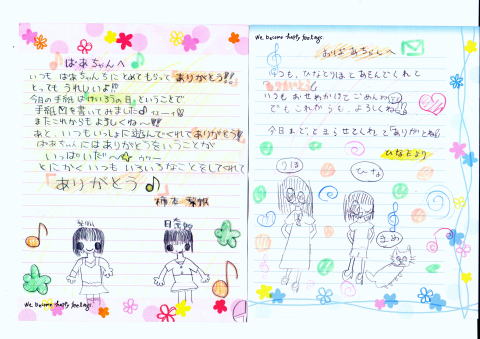 ばあちゃんへ
いつも ばあちゃんちに とめてもらって ありがとう!!
とっても うれしいよ!!
今日の手紙は けいろうの日 ということで
手紙を書いてみました♪
またこれからも よろしくね〜!!
あと、いつも いっしょに 遊んでくれて ありがとう!
ばあちゃんには ありがとうを いうことが
いっぱいだ〜☆
とにかく いつも いろいろなことを してくれて
ありがとう♪
We become happy feelings.
We become happy feelings.
おばあちゃんへ
いつも、ひなとりほと あそんでくれて
ありがとう
いつも おせわかけて ごめんね
でも これからも、よろしくね
ひなより
りほ
ひな
まめ